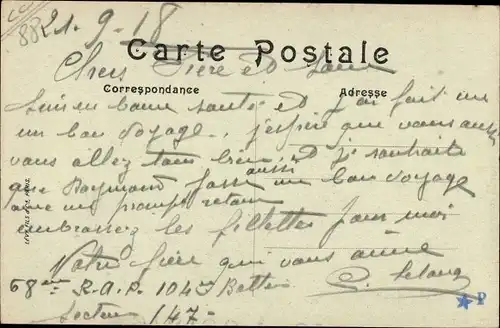 21-9-18
Carte Postale
Chers Frère et
Correspondance
Adresse
Suis en bonne santé et j'ai fait un
un bon voyage, j'espère que vous aussi
vous allez tous bien, et je souhaite
que Raymond fasse aussi un bon voyage
avec un prompt retour
embrassez les fillettes pour moi
Votre frère qui vous aime
68eme R.A.P. 104e Batterie
Secteur 147-
P